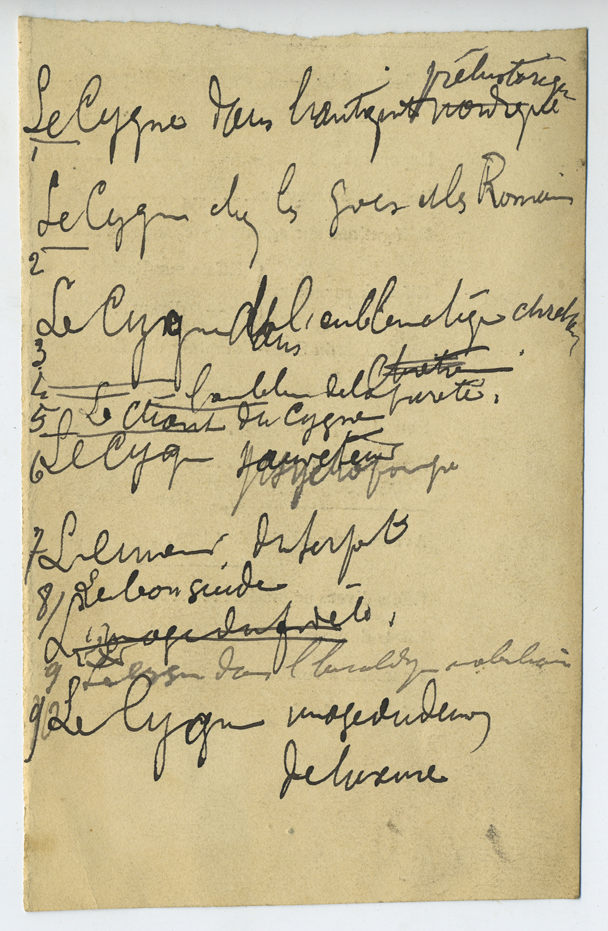 préhistorique
Le Cygne dans l'antiquité nordique
1
Le Cygne chez les Grecs et les Romains
2
Le Cygne dans l'emblématique chrétien
3
4 l'emblème de la pureté.
5 Le Chant du Cygne
6 Le Cygne sauveteur
psychopompe
7 L'ennemi du serpent
8/ Le bon guide
L'image du fidèle.
9 Le cygne dans l'héraldique nobiliaire
10 Le Cygne image du démon
de luxure